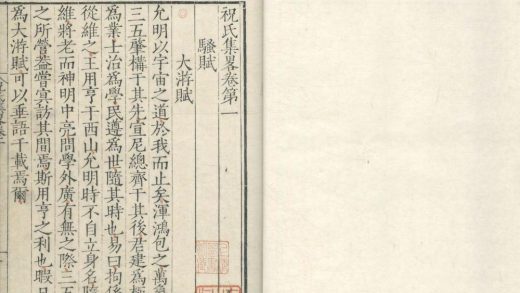 祝氏集畧卷第一
騷賦
大游賦
允明以宇宙之道於我而止矣渾鴻包之萬
三五肇構于其先宣尼總齊于其後君建為
為業士治為學民遵為世隨其時也易曰拘係
從維之王用亨于西山允明時不自立身名隨
維將老而神明中亮問學外廣有無之際三五
之所營葢嘗㝠訪其間焉斯用亨之利也暇日
為大游賦可以垂語千載焉爾